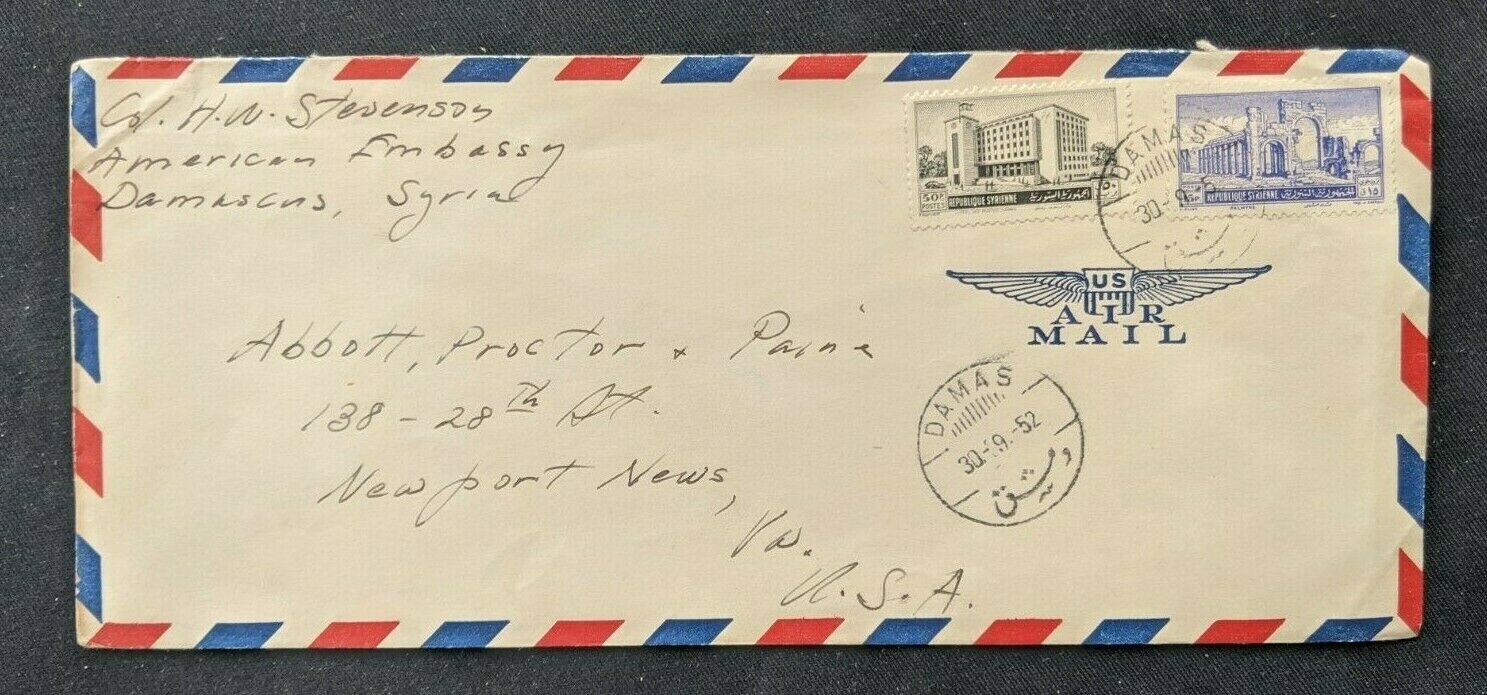 Col. H.W. Stevenson
American Embassy
Damascus, Syria
50P
POSTES
REPUBLIQUE SYRIENNE
الجمهورية السورية
٥٠
REPUBLIQUE SYRIENNE
الجمهورية السورية
PALMYRE
DAMAS
30.-9.-5
دمشق
US
AIR
MAIL
Abbott, Proctor + Paine
138 - 28th St.
Newport News,
Va.
U.S.A.
DAMAS
30.-9.-52
دمشق